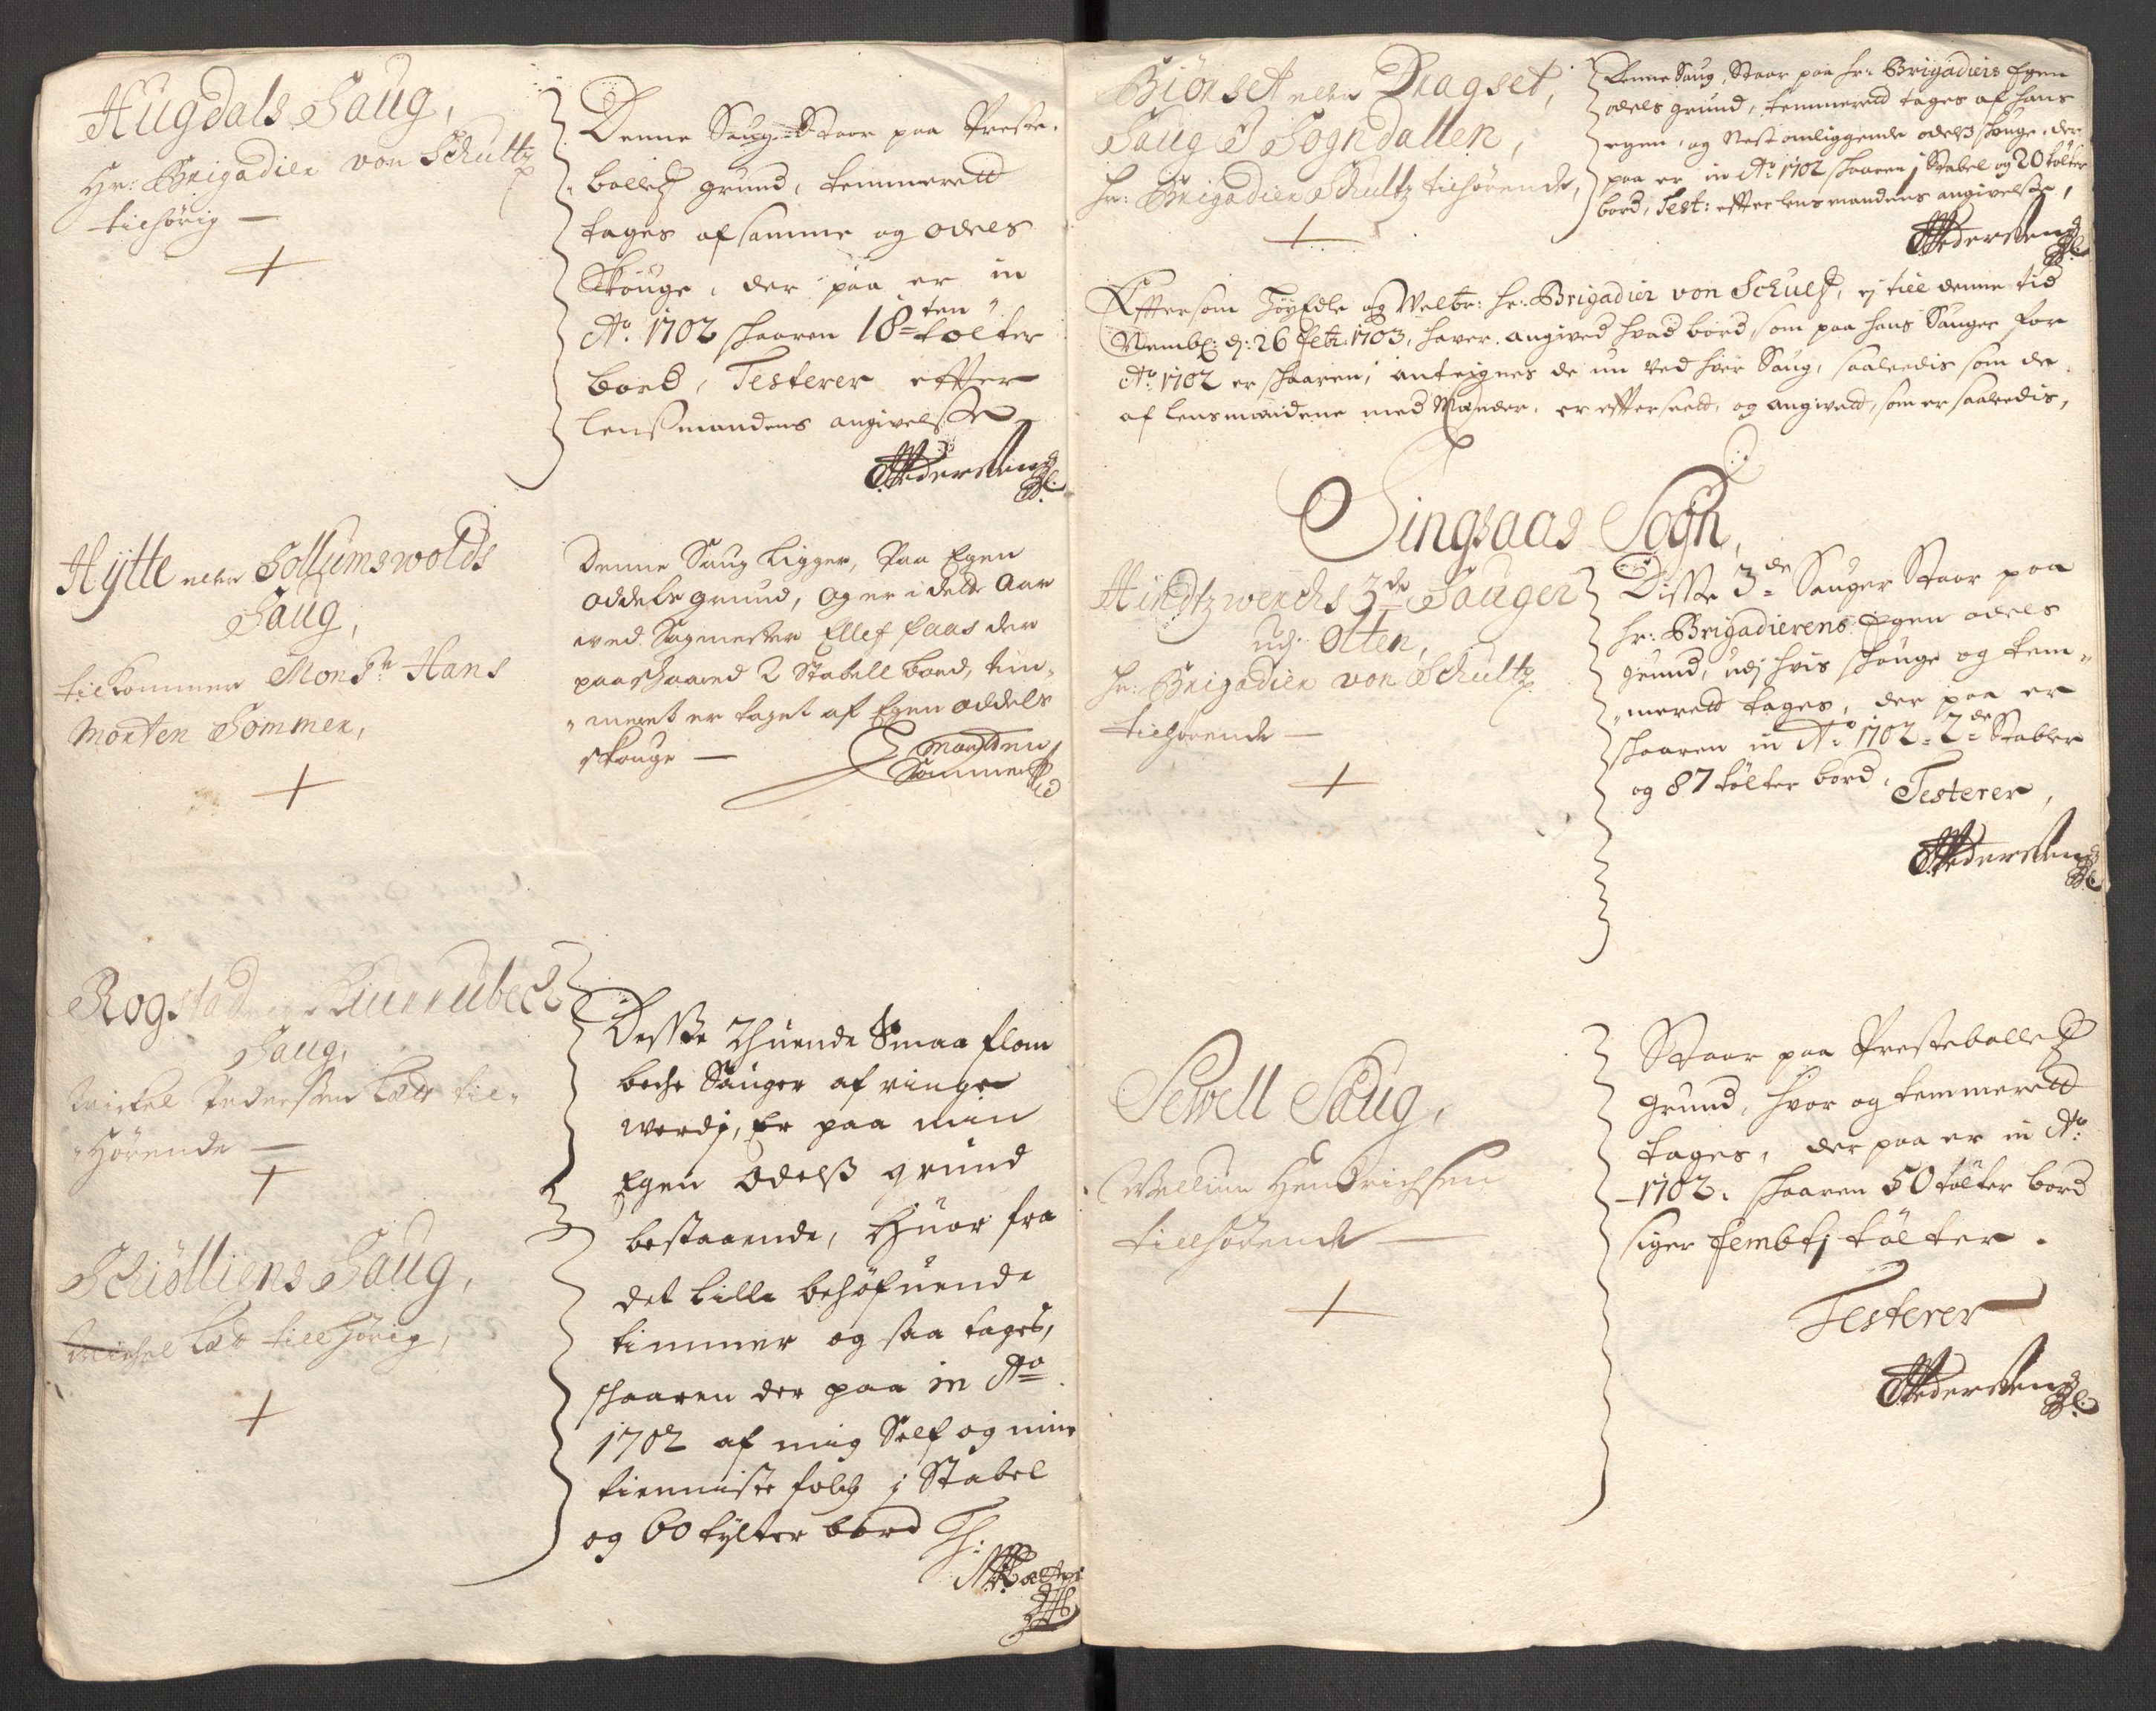 Hugdals Saug,
Hr: Brigadier von Schultz
tilhörig —
Denne Saug Staar paa Preste-
bolletz grund, temmeret
tages af samme og odels
Skouge, der paa er in
Ao. 1702 skaaren 18ten tolter
bord, Testerer effter
lensmandens angivelsse,
Hÿtte eller Sollumswolds
Saug,
tilkommer Monsr Hans
Morten Sommer,
Denne Saug ligger, Paa Egen
oddels grund, og er i dette Aar
wed Sagmester Ellef Aas der
paa skaared 2 Stabell bord, tim-
meret er taget af Egen oddels
skouge —
Morten
Sommer
Rogstad
Saug,
Mickel Pedersen til-
hörende —
Desse 2huende Smaa flom
beche Sauger af ringe
werdj, Er paa min
Egen odelss grund
bestaaende, Huor fra
det lille behøfuende
timmer og saa tages,
skaaren der paa in Ao
1702 af mig Self og mine
tienniste folch j Stabel
og 60 tylter bord
Schiölliens Saug,
Michel tillhörig,
Biörset eller Dragset,
Saug I Sogndallen,
hr: Brigadier Schultz tilhörende,
Denne Saug, Staar paa hr: Brigadiers Egen
odels grund, temmeret tages af hans
egen, og Nest omliggende odels skouge, der
paa er in Ao: 1702 skaaren j Stabel og 20 tolter
bord, Test: effter lensmandens angivelsse,
Pedersen
Efftersom Höyedle og Welbr: hr: Brigadier von Schultz, ej till denne tid
26 Febr: 1703, haver angived hvad bord, som paa hans Sauger for
Ao 1702 er skaaren, anteignes de nu ved hver Saug, saaledis som de
af lensmandene med Mænder, er effterseet, og angivet, som er saaledis,
Singsaas Sogn,
Hindtzwerchs 3de Sauger
udj Olten,
hr: Brigadier von Schultz
tilhörende —
Disse 3de Sauger Staar paa
hr: Brigadierens Egen odels
grund, udj hvis skouge og tem-
meret tages, der paa er
skaaren in Ao 1702 2de Stabler
og 87 tolter bord, Testerer,
Pedersen
Sewell Saug,
Wellum Hendrichsen
tillhörende —
Staar paa Prestebolletz
grund, hvor og temmeret
tages, der paa er in Ao:
1702. skaaren 50 tolter bord
siger fembtj tolter.
Testerer
Pedersen